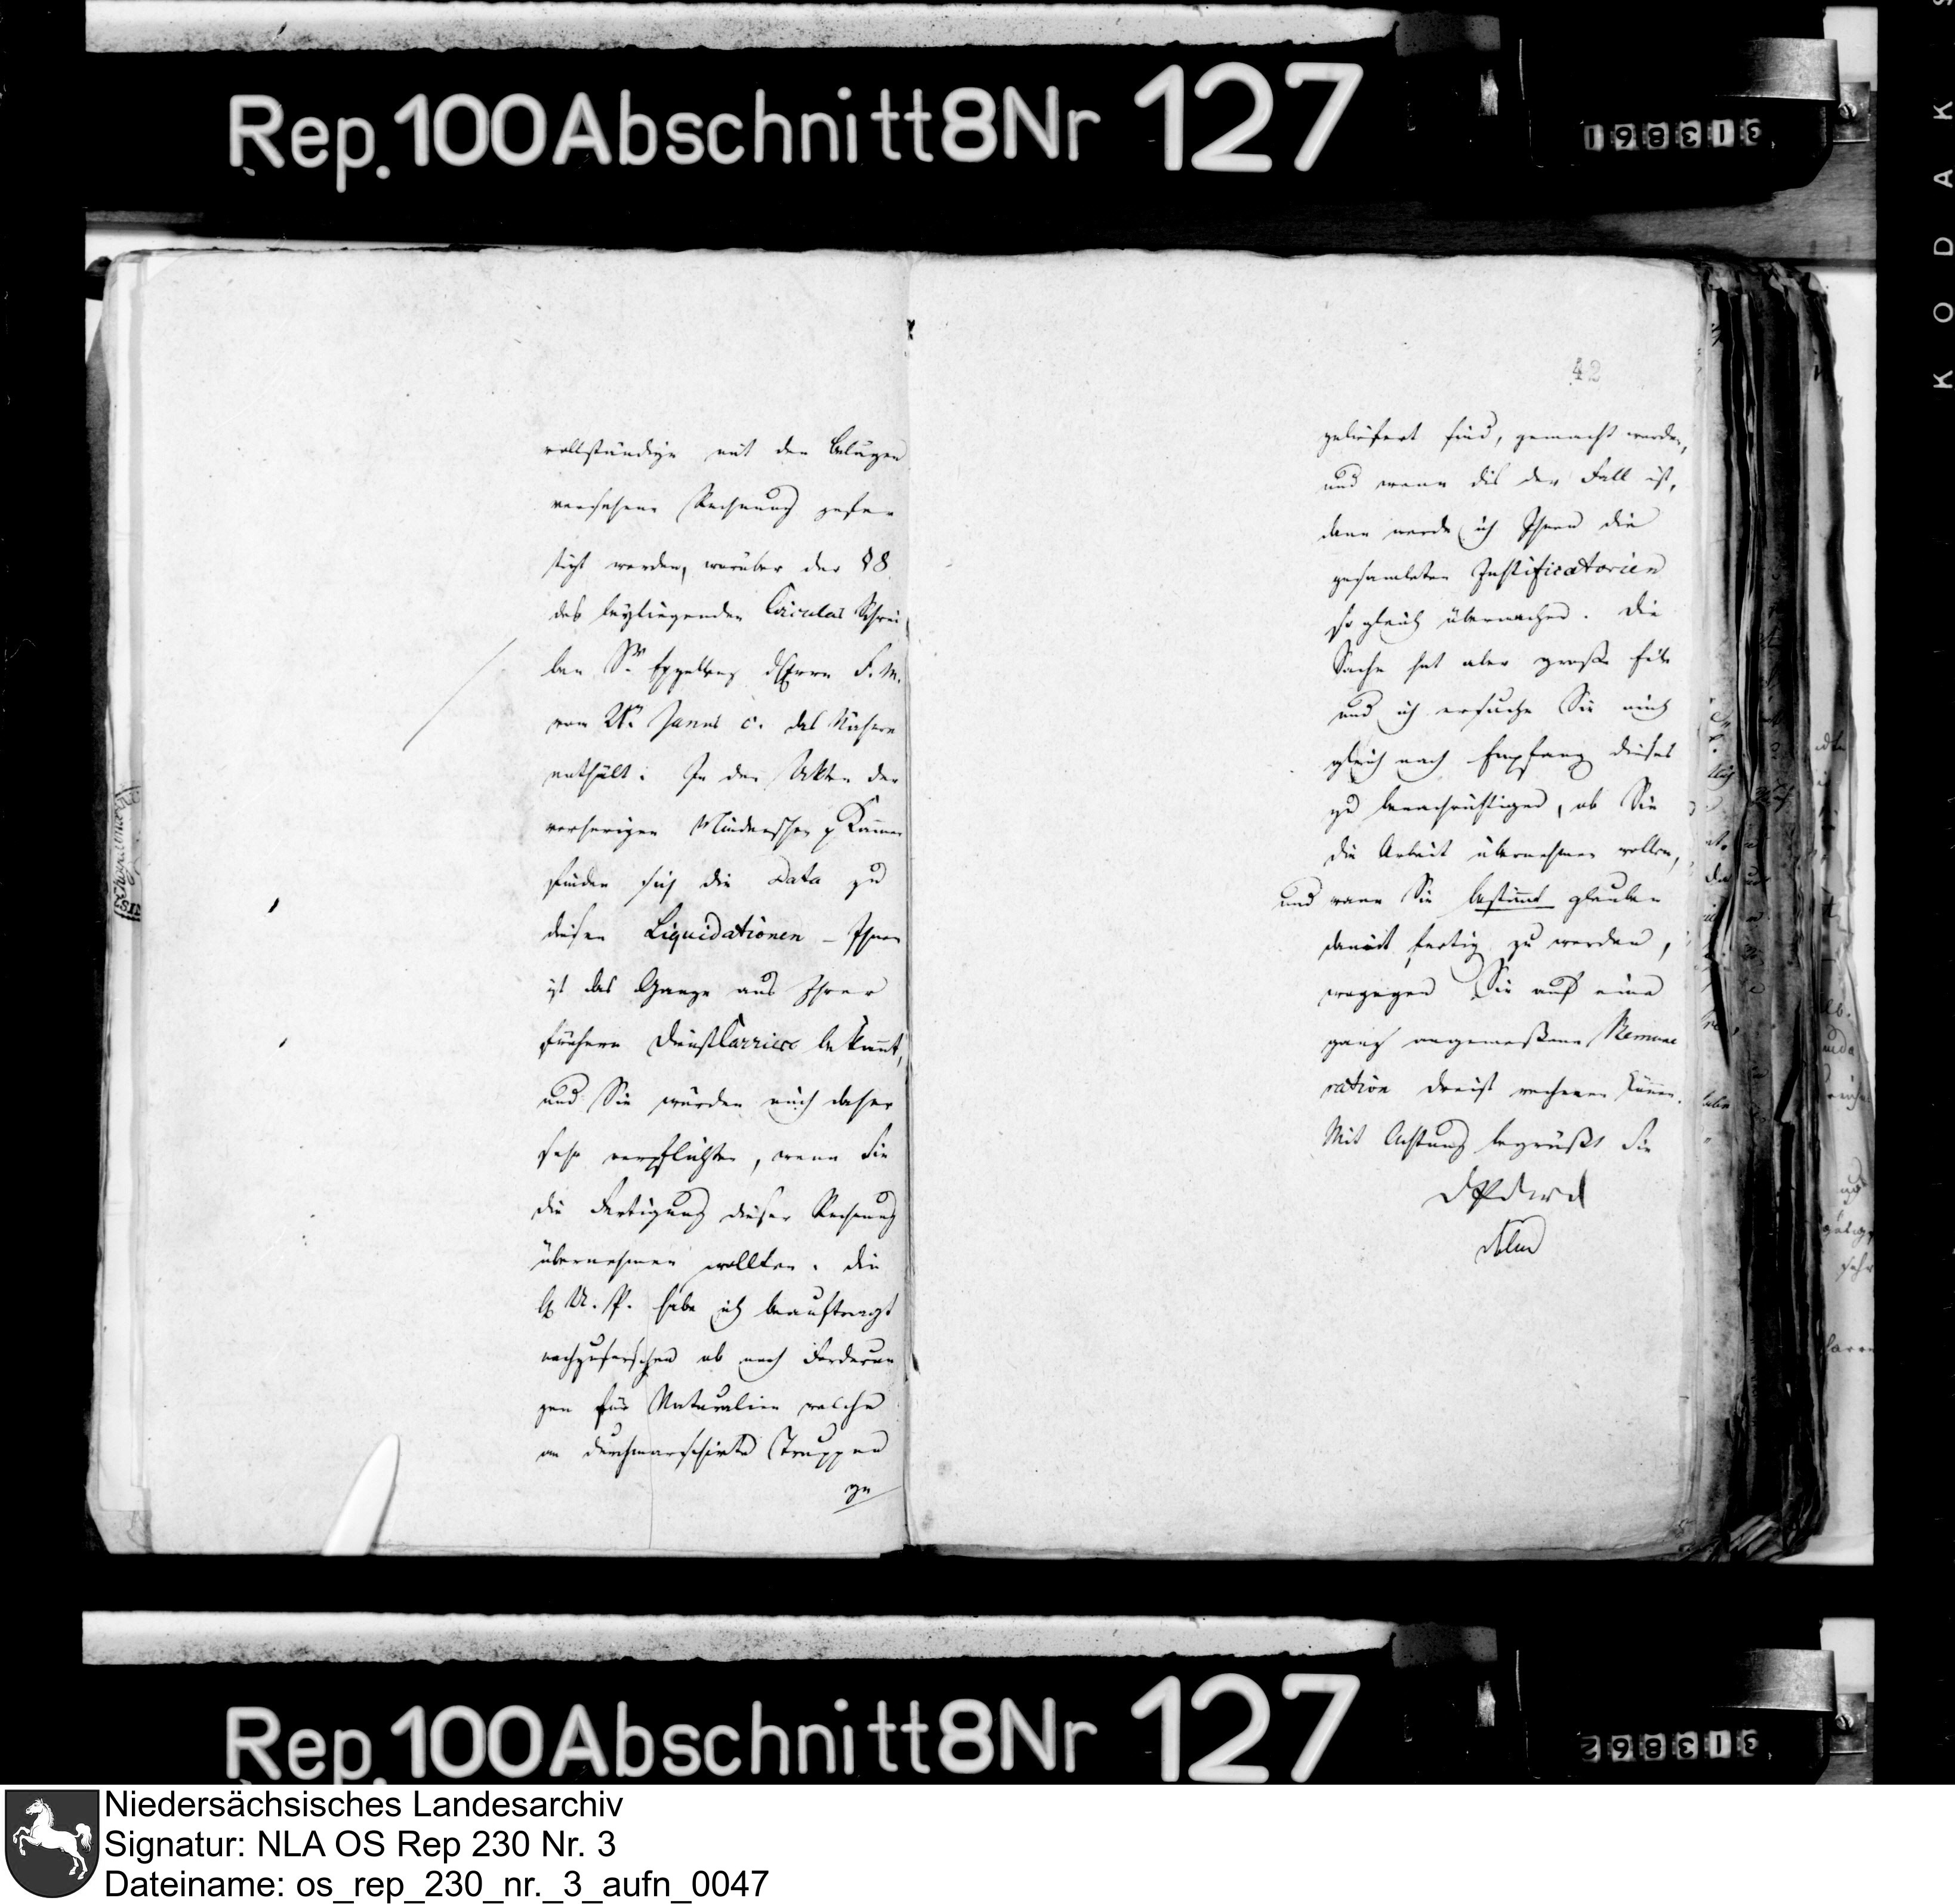 Rep. 100 Abschnitt 8 Nr 127
313861
KODAK S
vollständige mit den Belägen
versehene Rechnung gefer
tigt werden, worüber der § 8
des beyliegenden Circular Schrei
ben Sr. Excellenz d Herrn F. M.
vom 21n Januar c. das Nähere
enthält. In den Akten der
vorherigen Mindenschen p Kammer
finden sich die Data zu
diesen Liquidationen – Ihnen
ist das Ganze aus Ihrer
frühern Dienst Carriere bekannt,
und Sie würden mich daher
sehr verpflichten, wenn Sie
die Fertigung dieser Rechnung
übernehmen wollten. Die
H U. P. habe ich beauftragt
nachzuforschen ob noch Forderun
gen für Naturalien welche
an durchmarschirte Truppen
ge
42
geliefert sind, gemacht werden,
und wenn dis der Fall ist,
dann werde ich Ihnen die
gesamleten Justificatorien
so gleich übermachen. Die
Sache hat aber große Eile
und ich ersuche Sie mich
gleich nach Empfang dieses
zu benachrichtigen, ob Sie
die Arbeit übernehmen wollen,
und wann Sie bestimmt glauben
damit fertig zu werden,
wogegen Sie auf eine
ganz angemeßene Remune
ration dreist rechnen können.
Mit Achtung begrüßt Sie
Rep. 100 Abschnitt 8 Nr 127
313862
Niedersächsisches Landesarchiv
Signatur: NLA OS Rep 230 Nr. 3
Dateiname: os_rep_230_nr._3_aufn_0047